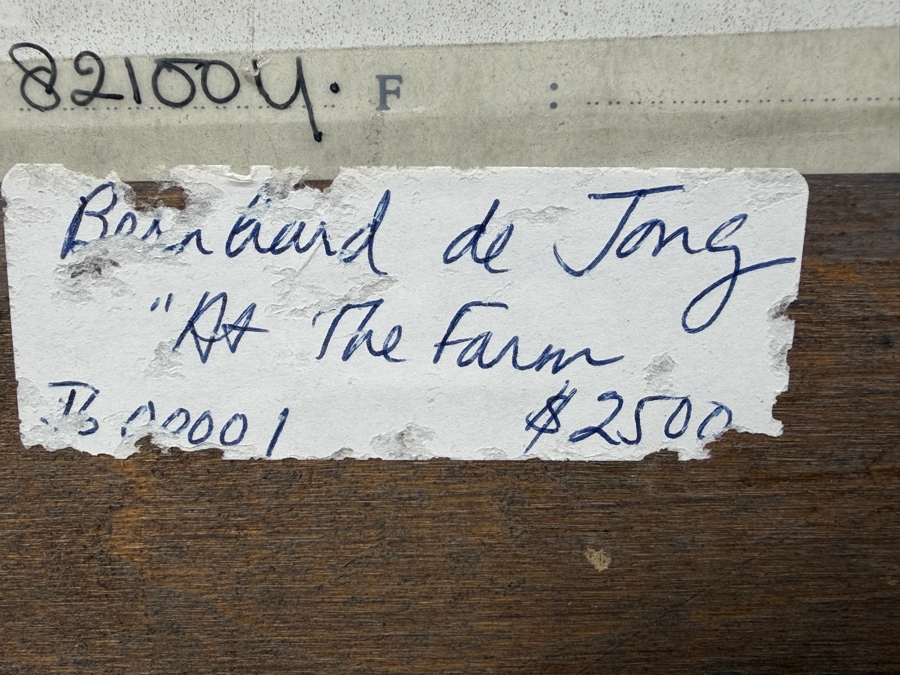 821004. F :
Bernhard de Jong
"At The Farm
$2500